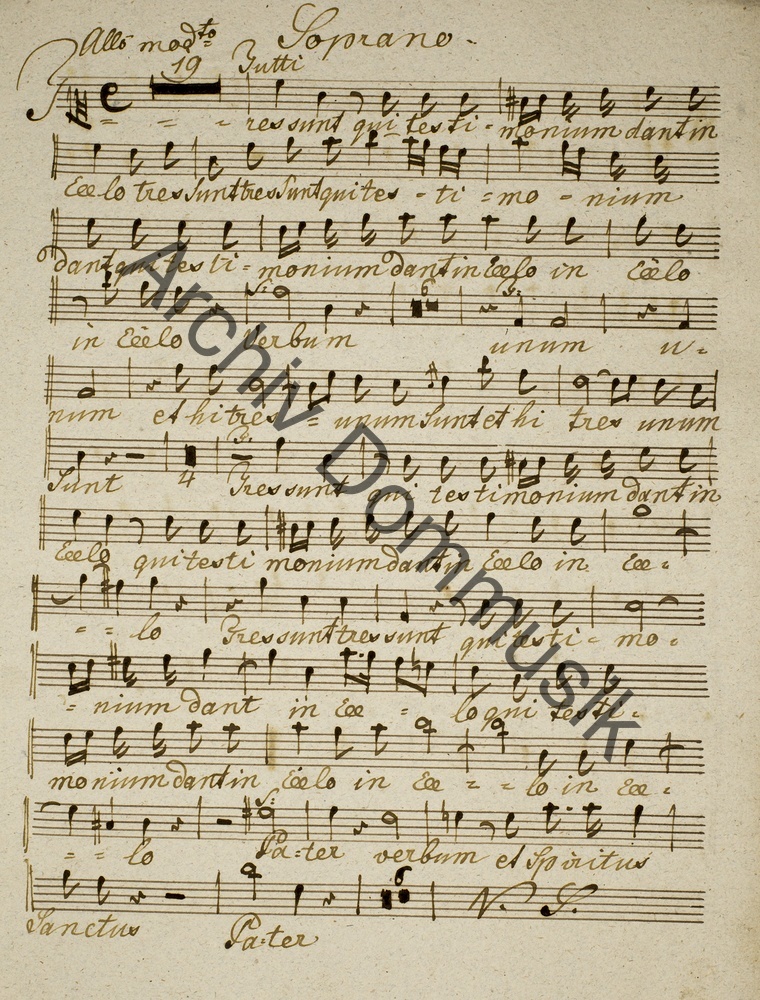 Soprano.
Allo modto
19 Tutti
Tres sunt qui testi = monium dant in
Coelo tres sunt tres sunt qui tes - ti = mo - nium
dant qui testi = monium dant in Coelo in Coelo
in Coelo Verbum 6 unum u =
num et hi tres = unum sunt et hi tres unum
Sunt 4 Tres sunt qui testimonium dant in
Coelo qui testi monium dant in Coelo in Coe =
= = lo Tres sunt tres sunt qui testi = mo =
= nium dant in Coe = lo qui testi =
monium dant in Coelo in Coe = = lo in Coe =
= = lo Pa = ter verbum et Spiritus
Sanctus Pa = ter 6 V. S.
Archiv Dommusik